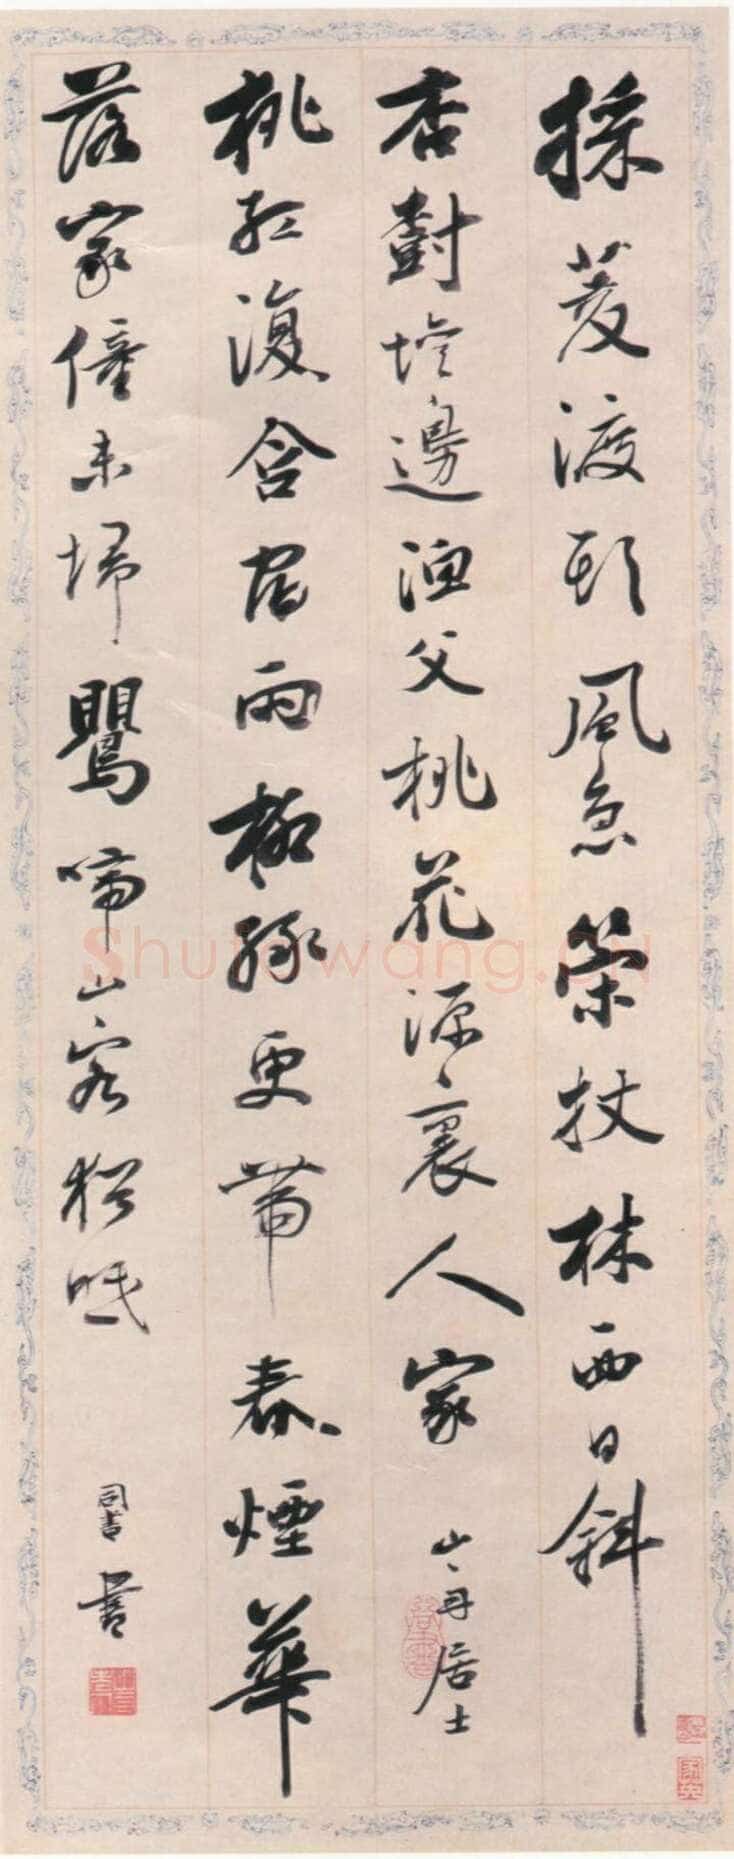 採菱渡頭風急策杖林西日斜
杏樹壇邊漁父桃花源裏人家 山舟居士
桃紅復含宿雨柳綠更帶春煙華
落家僮未埽鸎啼山客猶眠 同書書
Shufawang.cn